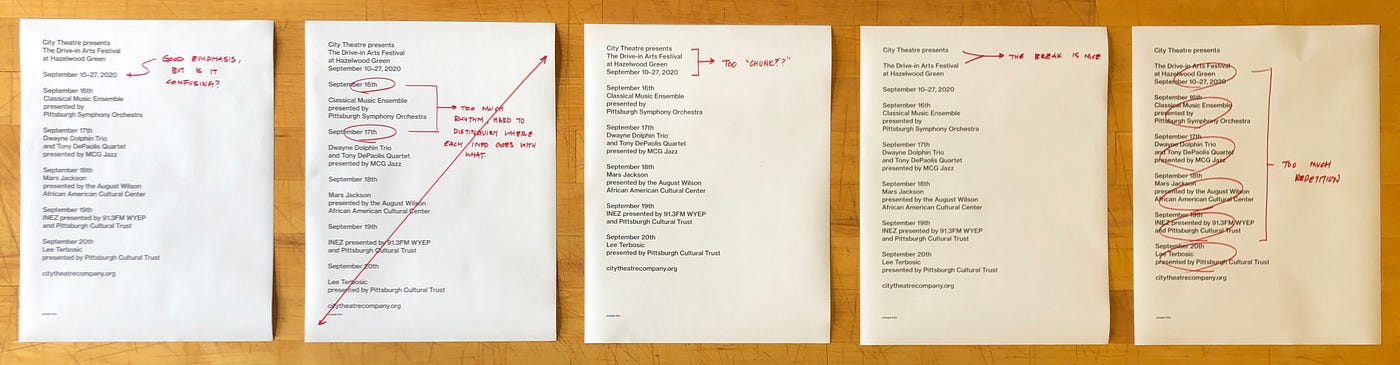 City Theatre presents
The Drive-in Arts Festival
at Hazelwood Green
September 10–27, 2020
September 16th
Classical Music Ensemble
presented by
Pittsburgh Symphony Orchestra
September 17th
Dwayne Dolphin Trio
and Tony DePaolis Quartet
presented by MCG Jazz
September 18th
Mars Jackson
presented by the August Wilson
African American Cultural Center
September 19th
INEZ presented by 91.3FM WYEP
and Pittsburgh Cultural Trust
September 20th
Lee Terbosic
presented by Pittsburgh Cultural Trust
citytheatrecompany.org
GOOD EMPHASIS,
BUT IS IT
CONFUSING?
City Theatre presents
The Drive-in Arts Festival
at Hazelwood Green
September 10–27, 2020
September 16th
Classical Music Ensemble
presented by
Pittsburgh Symphony Orchestra
September 17th
Dwayne Dolphin Trio
and Tony DePaolis Quartet
presented by MCG Jazz
September 18th
Mars Jackson
presented by the August Wilson
African American Cultural Center
September 19th
INEZ presented by 91.3FM WYEP
and Pittsburgh Cultural Trust
September 20th
Lee Terbosic
presented by Pittsburgh Cultural Trust
citytheatrecompany.org
TOO MUCH
RHYTHM, HARD TO
DISTINGUISH WHERE
EACH INFO GOES WITH
WHAT.
City Theatre presents
The Drive-in Arts Festival
at Hazelwood Green
September 10–27, 2020
September 16th
Classical Music Ensemble
presented by
Pittsburgh Symphony Orchestra
September 17th
Dwayne Dolphin Trio
and Tony DePaolis Quartet
presented by MCG Jazz
September 18th
Mars Jackson
presented by the August Wilson
African American Cultural Center
September 19th
INEZ presented by 91.3FM WYEP
and Pittsburgh Cultural Trust
September 20th
Lee Terbosic
presented by Pittsburgh Cultural Trust
citytheatrecompany.org
TOO "CHUNKY?"
City Theatre presents
The Drive-in Arts Festival
at Hazelwood Green
September 10–27, 2020
September 16th
Classical Music Ensemble
presented by
Pittsburgh Symphony Orchestra
September 17th
Dwayne Dolphin Trio
and Tony DePaolis Quartet
presented by MCG Jazz
September 18th
Mars Jackson
presented by the August Wilson
African American Cultural Center
September 19th
INEZ presented by 91.3FM WYEP
and Pittsburgh Cultural Trust
September 20th
Lee Terbosic
presented by Pittsburgh Cultural Trust
citytheatrecompany.org
THE BREAK IS NICE
City Theatre presents
The Drive-in Arts Festival
at Hazelwood Green
September 10–27, 2020
September 16th
Classical Music Ensemble
presented by
Pittsburgh Symphony Orchestra
September 17th
Dwayne Dolphin Trio
and Tony DePaolis Quartet
presented by MCG Jazz
September 18th
Mars Jackson
presented by the August Wilson
African American Cultural Center
September 19th
INEZ presented by 91.3FM WYEP
and Pittsburgh Cultural Trust
September 20th
Lee Terbosic
presented by Pittsburgh Cultural Trust
citytheatrecompany.org
TOO MUCH
REPETITION